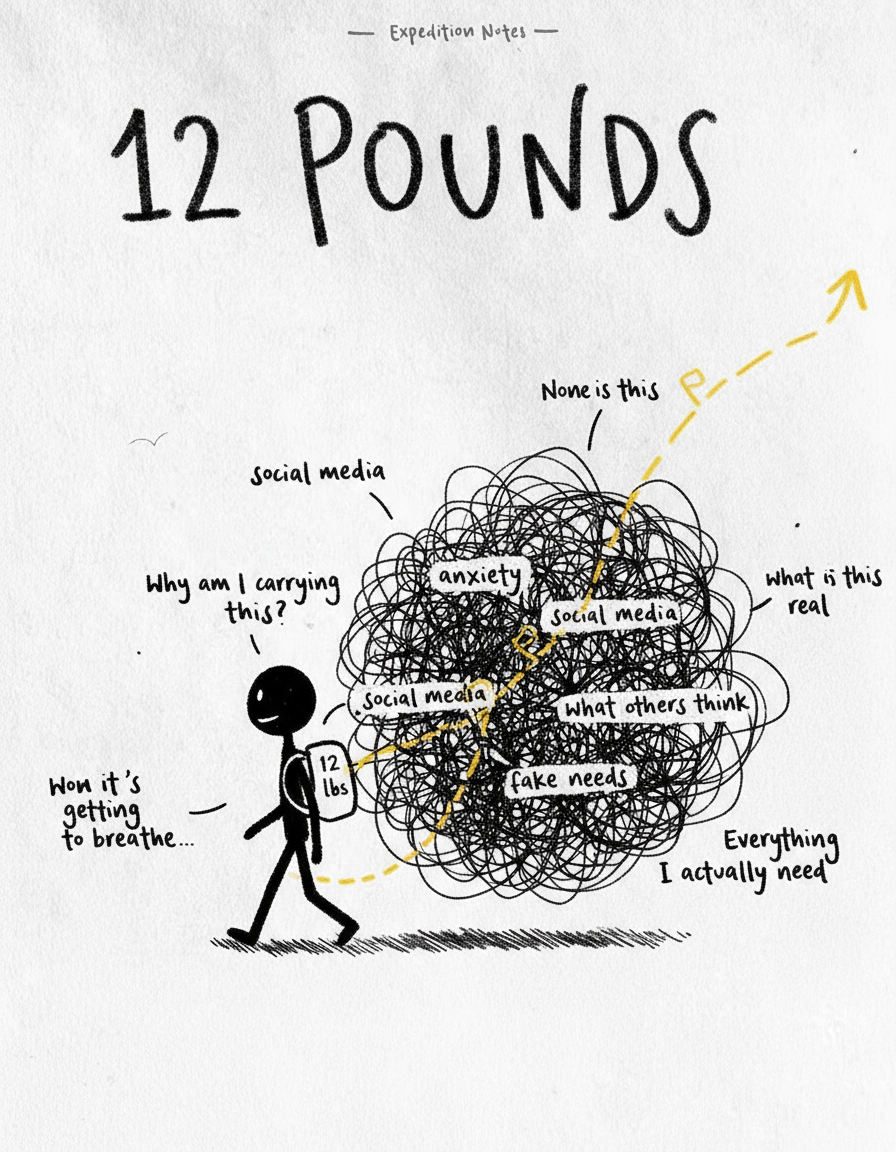 Expedition Notes
12 POUNDS
None is this
social media
anxiety
Why am I carrying
this?
what is this
real
social media
social media
what others think
12
lbs
fake needs
Won it's
getting
to breathe...
Everything
I actually need